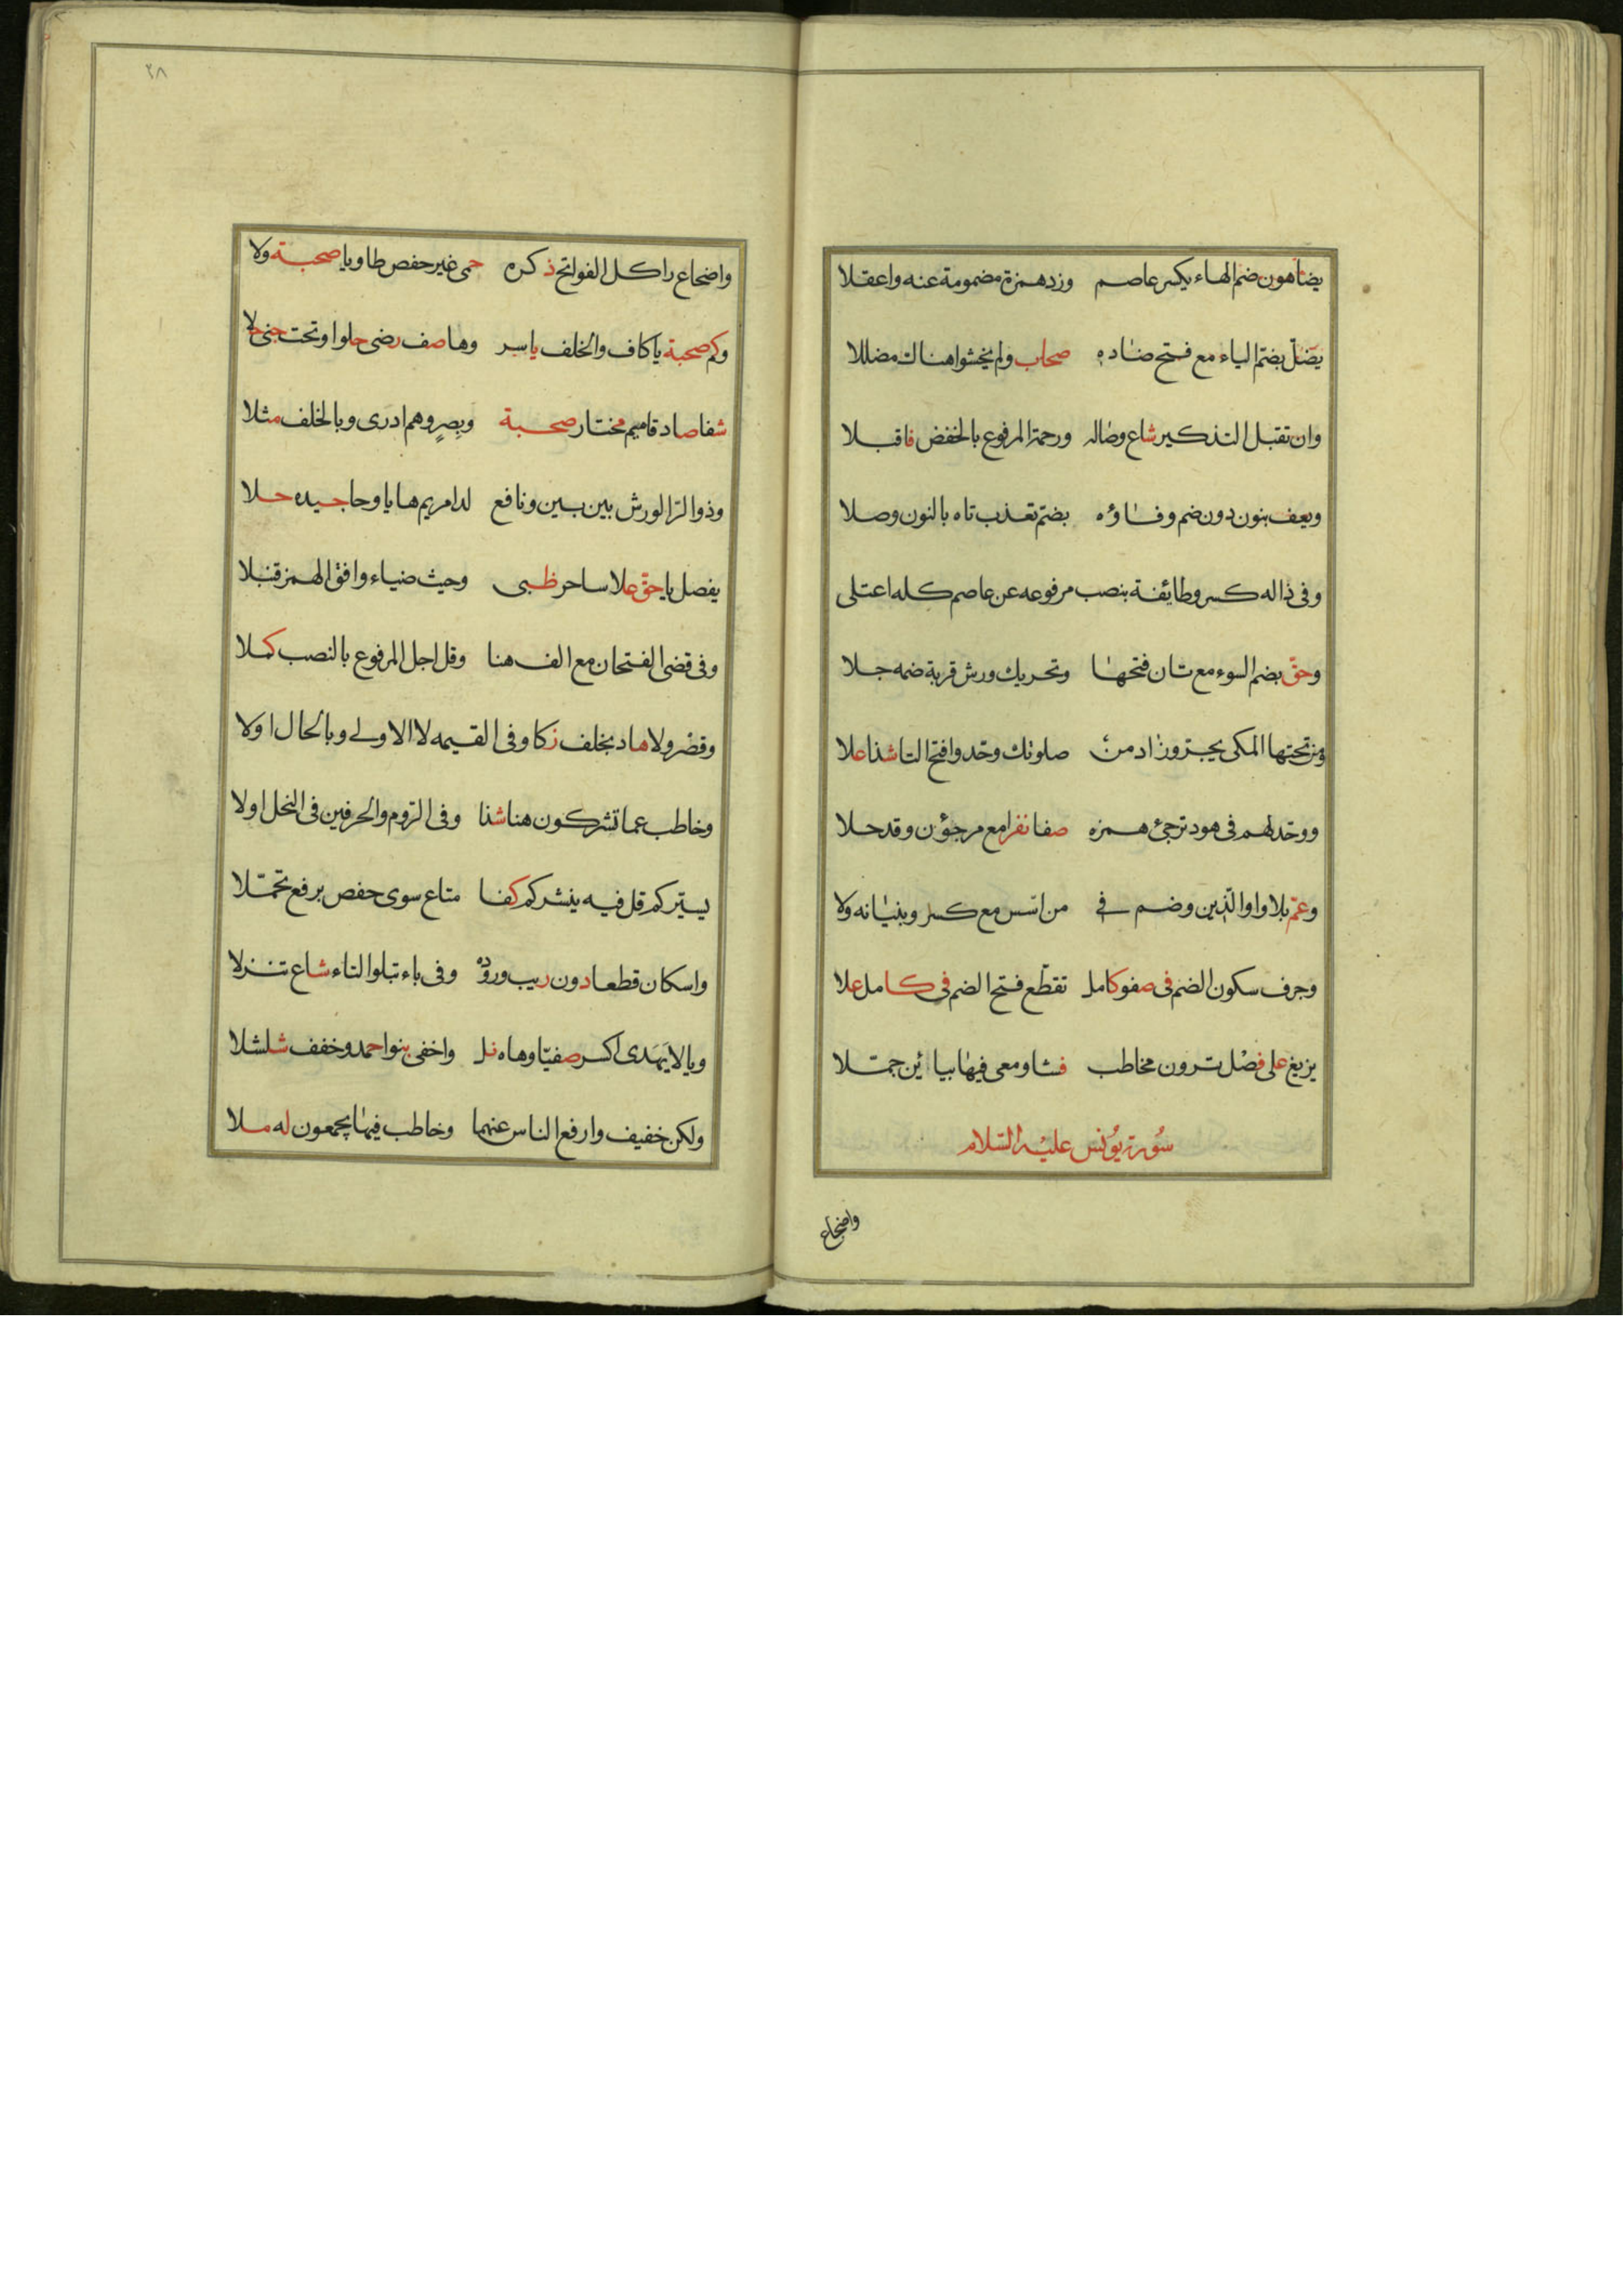 يضاهون ضم الهاء يكسر عاصم وزد همزة مضمومة عنه واعقلا
يضل بضم الياء مع فتح ضاده صحاب ولم يخشوا هناك مضللا
وان تقبل التذكير شاع وصاله ورحمة المرفوع بالخفض فاقبلا
ويعف بنون دون ضم وفاؤه بضم تعذب تاه بالنون وصلا
وفى ذاله كسر وطائفة بنصب مرفوعه عن عاصم كله اعتلى
وحق بضم السوء مع ثان فتحها وتحريك ورش قربة ضمه جلا
ومن تحتها المكى يجر وزاد من صلوتك وحد وافتح التا شذا علا
ووحد لهم فى هود ترجئ همزه صفا نفرا مع مرجؤن وقد حلا
وعم بلا واو الذين وضم فى من اسس مع كسر وبنيانه ولا
وجرف سكون الضم فى صفو كامل تقطع فتح الضم فى كامل علا
يزيغ على فصل ترون مخاطب فشا ومعى فيها بيائين جملا
سورة يونس عليه السلام
واضجاع
٢٨
واضجاع را كل الفواتح ذكره حمى غير حفص طا ويا صحبة ولا
وكم صحبة يا كاف والخلف ياسر وها صف رضى حلوا وتحت جنى حلا
شفا صادقا ميم مختار صحبة وبصر وهم ادرى وبالخلف مثلا
وذو الرا لورش بين بين ونافع لدا مريم ها يا وحا جيده حلا
يفصل يا حق علا ساحر ظبى وحيث ضياء وافق الهمز قنبلا
وفى قضى الفتحان مع الف هنا وقل اجل المرفوع بالنصب كملا
وقصر ولا هاد بخلف زكا وفى القيمه لا الاولى وبالحال اولا
وخاطب عما تشركون هنا شذا وفى الروم والحرفين فى النحل اولا
يسيركم قل فيه ينشركم كفا متاع سوى حفص برفع تحملا
واسكان قطعا دون ريب وروده وفى باء تبلوا التاء شاع تنزلا
ويا لا يهدى اكسر صفيا وهاه نل واخفى بنوا حمد وخفف شلشلا
ولكن خفيف وارفع الناس عنهما وخاطب فيها يجمعون له ملا